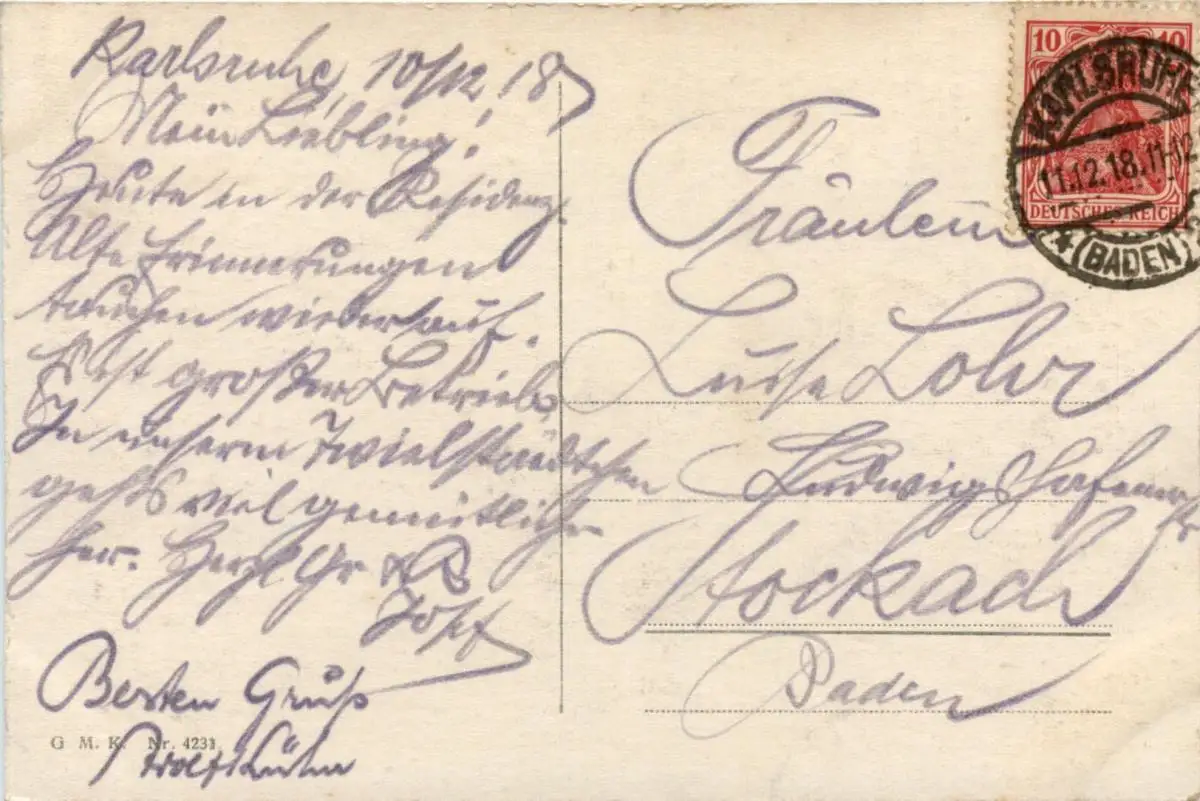 Karlsruhe, 10/12.18
Mein Liebling!
Heute in der Residenz.
Alte Erinnerungen
tauchen wieder auf.
Hier ist großer Betrieb,
In unserm Twielstädtchen
gehts viel gemütlicher
her. Herzl Gr
Josef
Besten Gruß
G. M. K. Nr. 4231.
10 10
DEUTSCHES REICH
KARLSRUHE
11.12.18.11-12
* (BADEN)
Fräulein
Luise Lohr
Ludwigshafener
Stockach
Baden